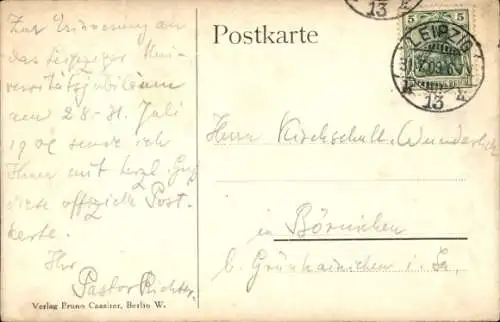 Zur Erinnerung an
das Leipziger Uni-
versitätsjubiläum
am 28-31. Juli
sende ich
Ihnen mit herzl. Gruß
diese offizielle Post-
karte.
Ihr
Pastor Richter.
Verlag Bruno Cassirer, Berlin W.
Postkarte
5 5
LEIPZIG
13
13
Herrn Kirchschull. Wunderlich
in Börnichen
b. Grünhainichen i. Sa.